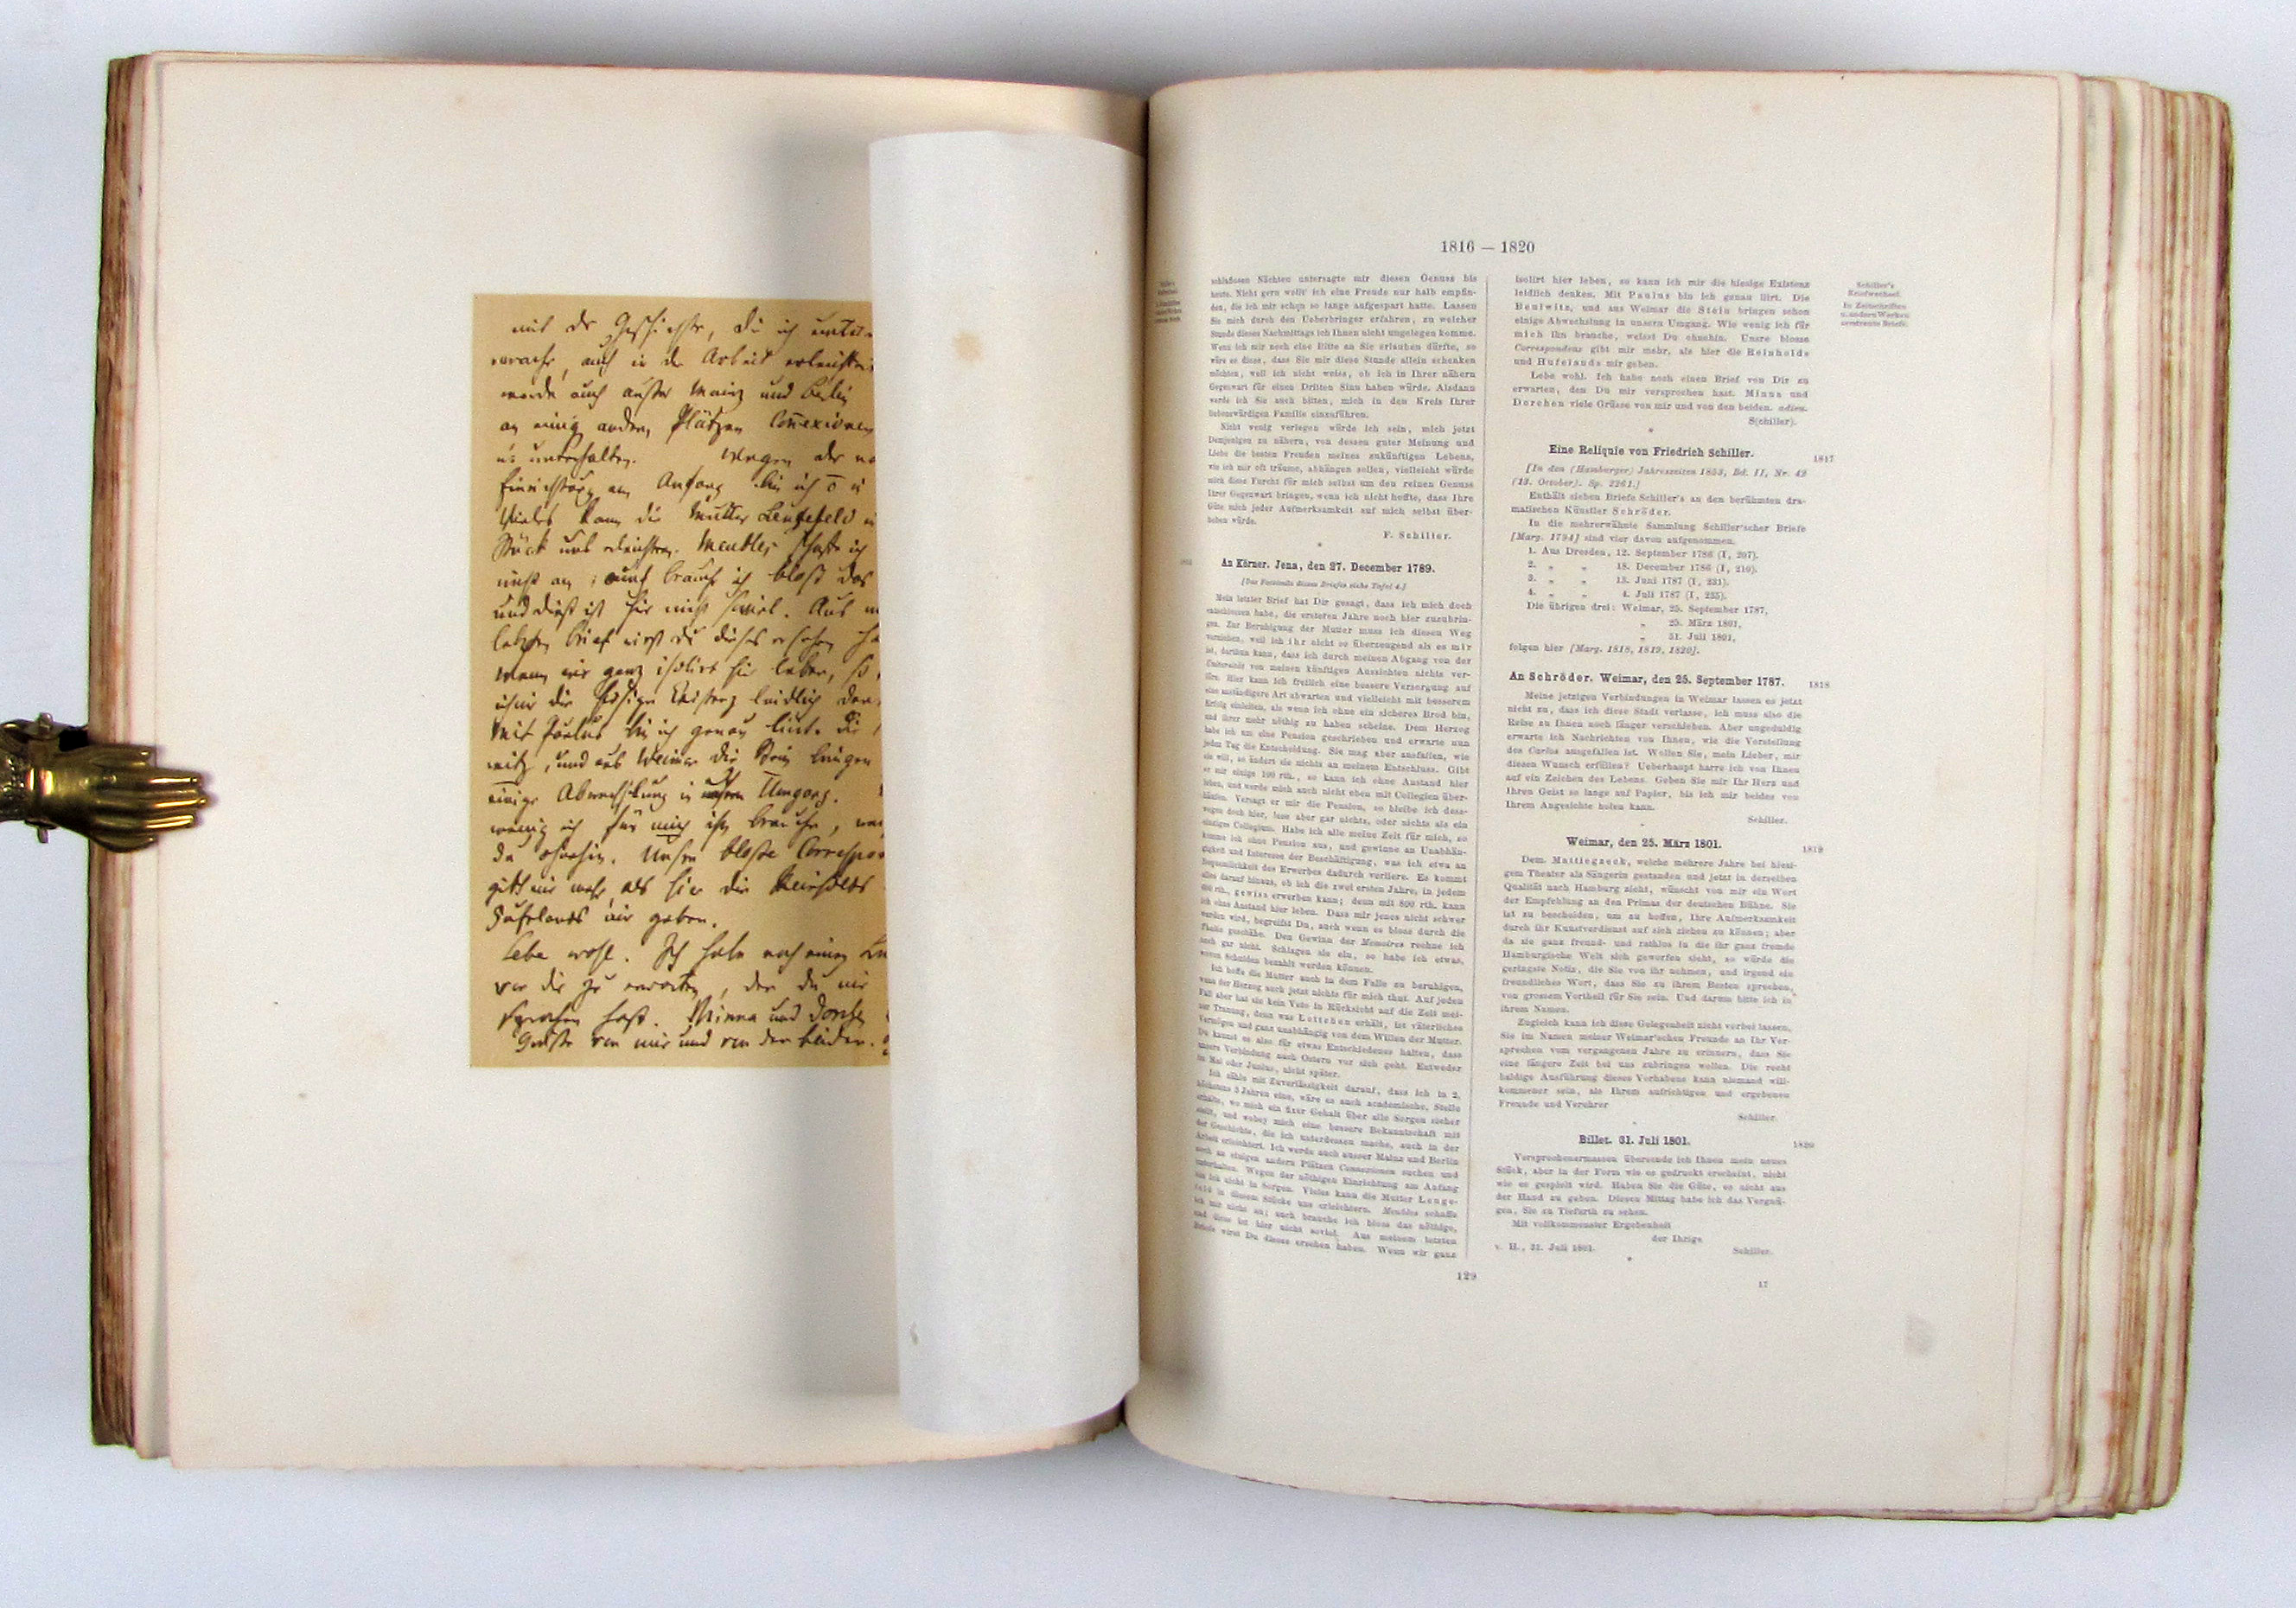 mit der Geschichte, die ich unter
mache, auch in der Arbeit erleichter
werde auch außer Mainz und Berlin
an einigen andern Plätzen Connexionen
unterhalten. Wegen der nö
Einrichtung am Anfang bin ich
Vieles kann die Mutter Lengefeld in
Stück uns erleichtern. Meubles schaffe ich
nicht an; auch brauche ich bloß das
und dieß ist hier nicht soviel. Aus m
letzten Brief wirst du dieses ersehen ha
Wenn wir ganz isolirt hier leben, so
ich mir die hiesige Existenz leidlich den
Mit Paulus bin ich genau liirt. Die
witz, und aus Weimar die Stein bringen
einige Abwechslung in unsern Umgang.
wenig ich für mich ihn brauche, wei
du ohnehin. Unsre bloße Correspon
gibt mir mehr, als hier die Reinholds
Hufelands mir geben.
Lebe wohl. Ich habe noch einen Br
von dir zu erwarten, den du mir
sprochen hast. Minna und Dorchen
Grüße von mir und von den beiden.
1816 — 1820
schlaflosen Nächten untersagte mir diesen Genuss bis
heute. Nicht gern wollt' ich eine Freude nur halb empfin-
den, die ich mir schon so lange aufgespart hatte. Lassen
Sie mich durch den Ueberbringer erfahren, zu welcher
Stunde dieses Nachmittags ich Ihnen nicht ungelegen komme.
Wenn ich mir noch eine Bitte an Sie erlauben dürfte, so
wäre es diese, dass Sie mir diese Stunde allein schenken
möchten, weil ich nicht weiss, ob ich in Ihrer nähern
Gegenwart für einen Dritten Sinn haben würde. Alsdann
werde ich Sie auch bitten, mich in den Kreis Ihrer
liebenswürdigen Familie einzuführen.
Nicht wenig verlegen würde ich sein, mich jetzt
Demjenigen zu nähern, von dessen guter Meinung und
Liebe die besten Freuden meines zukünftigen Lebens,
wie ich mir oft träume, abhängen sollen, vielleicht würde
mich diese Furcht für mich selbst um den reinen Genuss
Ihrer Gegenwart bringen, wenn ich nicht hoffte, dass Ihre
Güte mich jeder Aufmerksamkeit auf mich selbst über-
heben würde.
F. Schiller.
*
An Körner. Jena, den 27. December 1789.
[Das Facsimile dieses Briefes siehe Tafel 4.]
Mein letzter Brief hat Dir gesagt, dass ich mich doch
entschlossen habe, die ersteren Jahre noch hier zuzubrin-
gen. Zur Beruhigung der Mutter muss ich diesen Weg
vorziehen, weil ich ihr nicht so überzeugend als es mir
ist, darthun kann, dass ich durch meinen Abgang von der
Universität von meinen künftigen Aussichten nichts ver-
liere. Hier kann ich freilich eine bessere Versorgung auf
eine anständigere Art abwarten und vielleicht mit besserem
Erfolg einleiten, als wenn ich ohne ein sicheres Brod bin,
und ihrer mehr nöthig zu haben scheine. Dem Herzog
habe ich um eine Pension geschrieben und erwarte nun
jeden Tag die Entscheidung. Sie mag aber ausfallen, wie
sie will, so ändert sie nichts an meinem Entschluss. Gibt
er mir einige 100 rth., so kann ich ohne Anstand hier
leben, und werde mich auch nicht eben mit Collegien über-
häufen. Versagt er mir die Pension, so bleibe ich dess-
wegen doch hier, lese aber gar nichts, oder nichts als ein
einziges Collegium. Habe ich alle meine Zeit für mich, so
komme ich ohne Pension aus, und gewinne an Unabhän-
gigkeit und Interesse der Beschäftigung, was ich etwa an
Bequemlichkeit des Erwerbes dadurch verliere. Es kommt
alles darauf hinaus, ob ich die zwei ersten Jahre, in jedem
600 rth., gewiss erwerben kann; denn mit 800 rth. kann
ich ohne Anstand hier leben. Dass mir jenes nicht schwer
werden wird, begreifst Du, auch wenn es bloss durch die
Thalia geschähe. Den Gewinn der Memoires rechne ich
noch gar nicht. Schlagen sie ein, so habe ich etwas,
wovon Schulden bezahlt werden können.
Ich hoffe die Mutter auch in dem Falle zu beruhigen,
wenn der Herzog auch jetzt nichts für mich thut. Auf jeden
Fall aber hat sie kein Veto in Rücksicht auf die Zeit mei-
ner Trauung, denn was Lottchen erhält, ist väterliches
Vermögen und ganz unabhängig von dem Willen der Mutter.
Du kannst es also für etwas Entschiedenes halten, dass
unsere Verbindung nach Ostern vor sich geht. Entweder
im Mai oder Junius, nicht später.
Ich zähle mit Zuverlässigkeit darauf, dass ich in 2,
höchstens 3 Jahren eine, wäre es auch academische, Stelle
erhalte, wo mich ein fixer Gehalt über alle Sorgen sicher
stellt, und wobey mich eine bessere Bekanntschaft mit
der Geschichte, die ich unterdessen mache, auch in der
Arbeit erleichtert. Ich werde auch ausser Mainz und Berlin
noch an einigen andern Plätzen Connexionen suchen und
unterhalten. Wegen der nöthigen Einrichtung am Anfang
bin ich nicht in Sorgen. Vieles kann die Mutter Lenge-
feld in diesem Stücke uns erleichtern. Meubles schaffe
ich mir nicht an; auch brauche ich bloss das nöthige,
und diess ist hier nicht soviel. Aus meinem letzten
Briefe wirst Du dieses ersehen haben. Wenn wir ganz
129
isolirt hier leben, so kann ich mir die hiesige Existenz
leidlich denken. Mit Paulus bin ich genau liirt. Die
Beulwitz, und aus Weimar die Stein bringen schon
einige Abwechslung in unsern Umgang. Wie wenig ich für
mich ihn brauche, weisst Du ohnehin. Unsre blosse
Correspondenz gibt mir mehr, als hier die Reinholds
und Hufelands mir geben.
Lebe wohl. Ich habe noch einen Brief von Dir zu
erwarten, den Du mir versprochen hast. Minna und
Dorchen viele Grüsse von mir und von den beiden. adieu.
S(chiller).
*
Eine Reliquie von Friedrich Schiller.
1817
[In den (Hamburger) Jahreszeiten 1853, Bd. II, Nr. 42
(13. October). Sp. 2261.]
Enthält sieben Briefe Schiller's an den berühmten dra-
matischen Künstler Schröder.
In die mehrerwähnte Sammlung Schiller'scher Briefe
[Marg. 1794] sind vier davon aufgenommen.
1. Aus Dresden, 12. September 1786 (I, 207).
2. „ „ 18. December 1786 (I, 210).
3. „ „ 13. Juni 1787 (I, 231).
4. „ „ 4. Juli 1787 (I, 235).
Die übrigen drei: Weimar, 25. September 1787,
„ 25. März 1801,
„ 31. Juli 1801,
folgen hier [Marg. 1818, 1819, 1820].
An Schröder. Weimar, den 25. September 1787.
1818
Meine jetzigen Verbindungen in Weimar lassen es jetzt
nicht zu, dass ich diese Stadt verlasse, ich muss also die
Reise zu Ihnen noch länger verschieben. Aber ungeduldig
erwarte ich Nachrichten von Ihnen, wie die Vorstellung
des Carlos ausgefallen ist. Wollen Sie, mein Lieber, mir
diesen Wunsch erfüllen? Ueberhaupt harre ich von Ihnen
auf ein Zeichen des Lebens. Geben Sie mir Ihr Herz und
Ihren Geist so lange auf Papier, bis ich mir beides von
Ihrem Angesichte holen kann.
Schiller.
Weimar, den 25. März 1801.
1819
Dem. Mattiegzeck, welche mehrere Jahre bei hiesi-
gem Theater als Sängerin gestanden und jetzt in derselben
Qualität nach Hamburg zieht, wünscht von mir ein Wort
der Empfehlung an den Primas der deutschen Bühne. Sie
ist zu bescheiden, um zu hoffen, Ihre Aufmerksamkeit
durch ihr Kunstverdienst auf sich ziehen zu können; aber
da sie ganz freund- und rathlos in die ihr ganz fremde
Hamburgische Welt sich geworfen sieht, so würde die
geringste Notiz, die Sie von ihr nehmen, und irgend ein
freundliches Wort, dass Sie zu ihrem Besten sprechen,
von grossem Vortheil für Sie sein. Und darum bitte ich in
ihrem Namen.
Zugleich kann ich diese Gelegenheit nicht vorbei lassen,
Sie im Namen meiner Weimar'schen Freunde an Ihr Ver-
sprechen vom vergangenen Jahre zu erinnern, dass Sie
eine längere Zeit bei uns zubringen wollen. Die recht
baldige Ausführung dieses Vorhabens kann niemand will-
kommener sein, als Ihrem aufrichtigen und ergebenen
Freunde und Verehrer
Schiller.
Billet. 31. Juli 1801.
1820
Versprochenermassen übersende ich Ihnen mein neues
Stück, aber in der Form wie es gedruckt erscheint, nicht
wie es gespielt wird. Haben Sie die Güte, es nicht aus
der Hand zu geben. Diesen Mittag habe ich das Vergnü-
gen, Sie zu Tiefurth zu sehen.
Mit vollkommenster Ergebenheit
der Ihrige
v. H., 31. Juli 1801.
Schiller.
*
17
Schiller's
Briefwechsel.
In Zeitschriften
u. andern Werken
zerstreute Briefe.